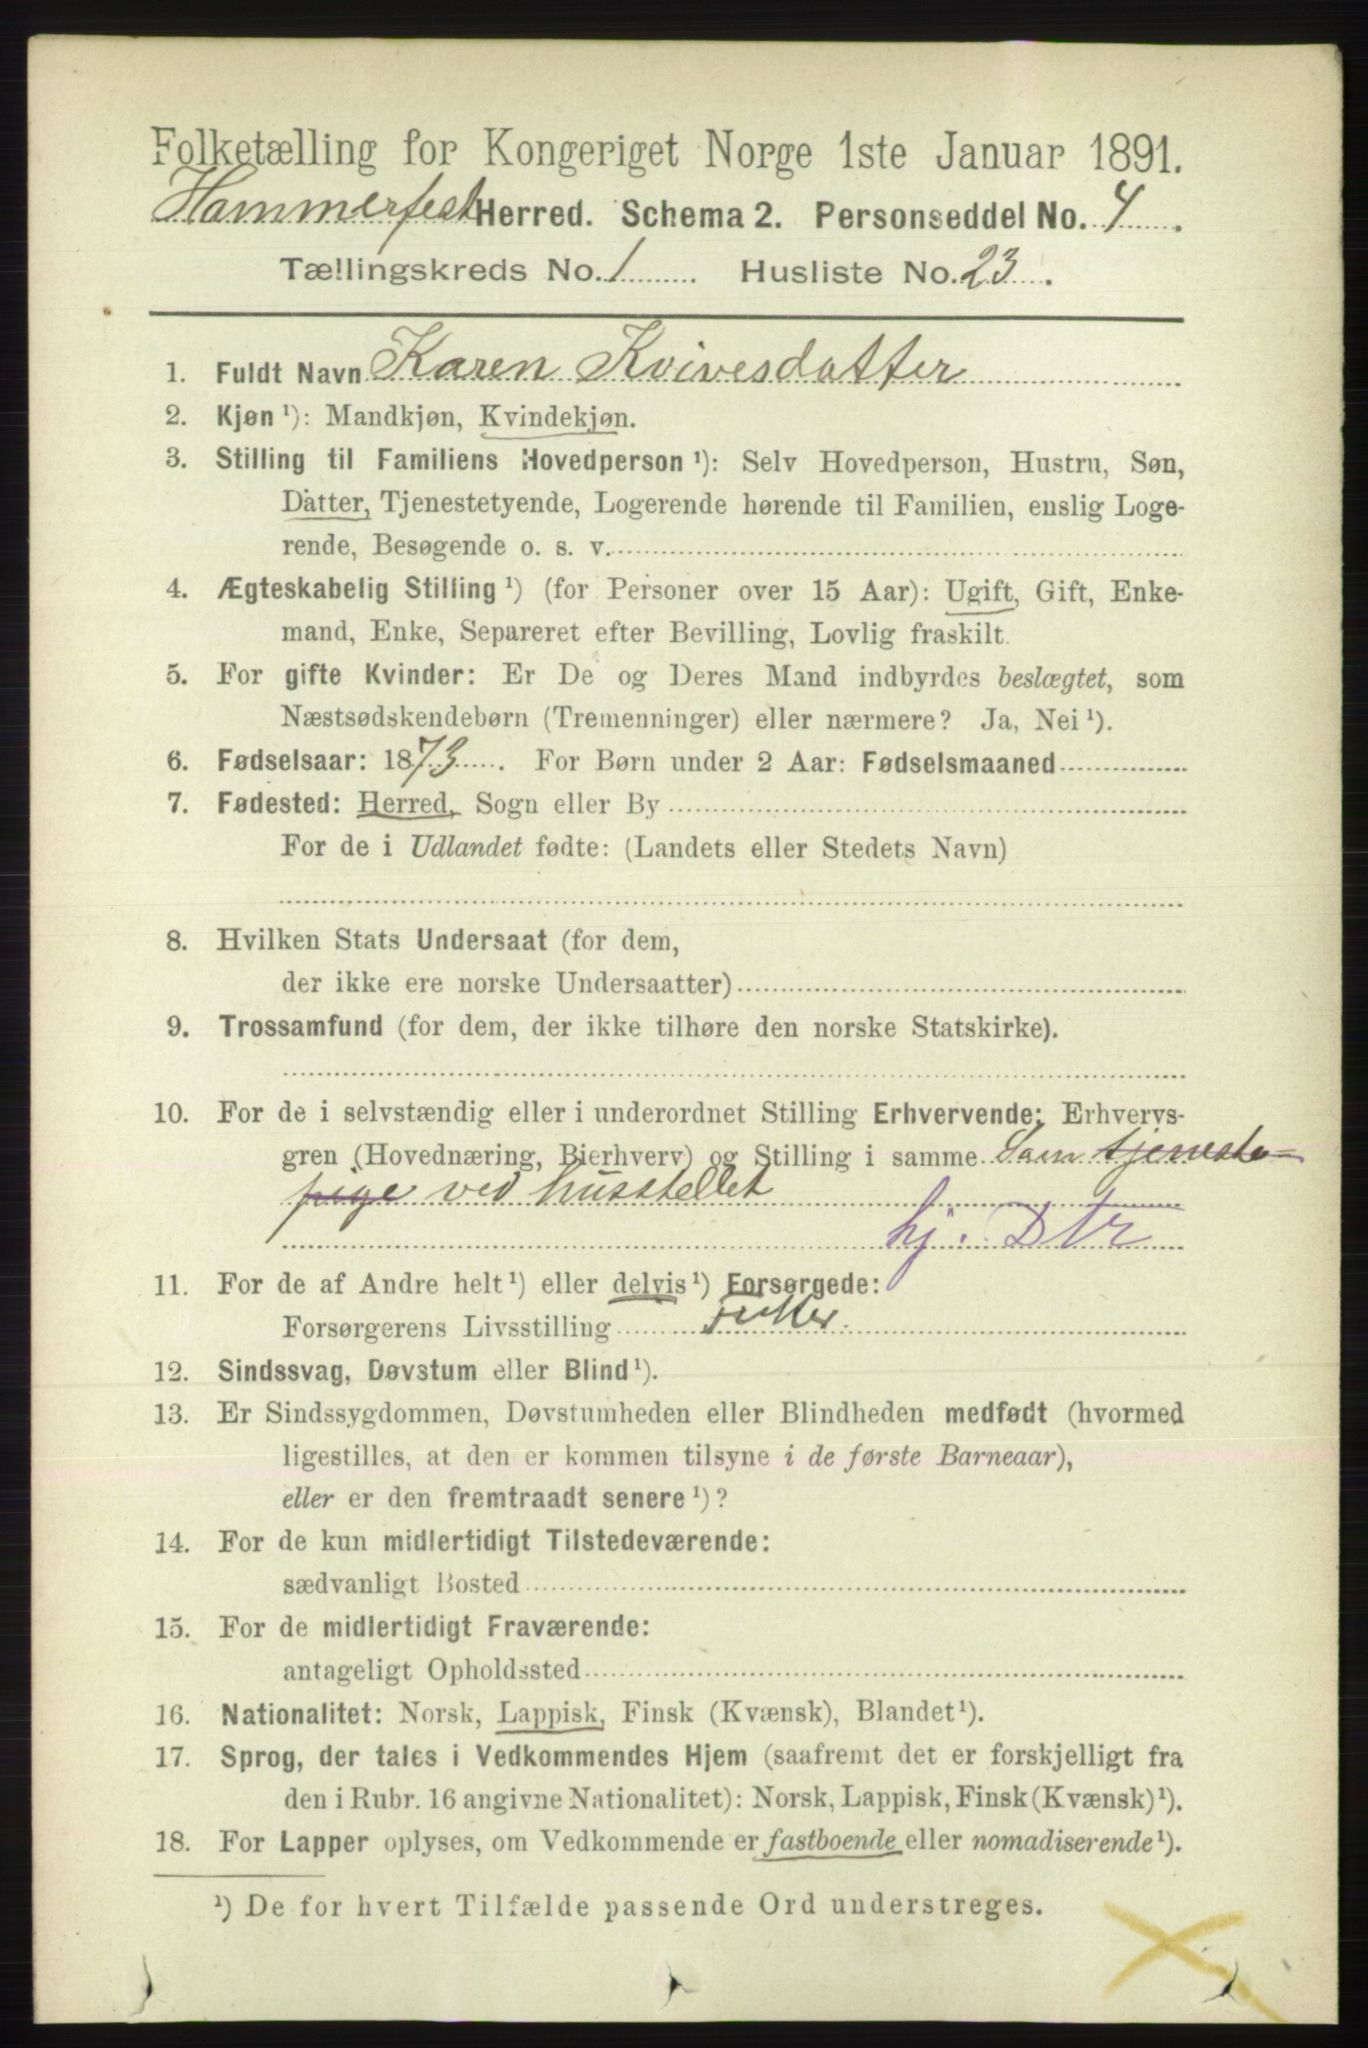 Folketælling for Kongeriget Norge 1ste Januar 1891.
Hammerfest Herred. Schema 2. Personseddel No. 4.
Tællingskreds No. 1 Husliste No. 23.
1. Fuldt Navn Karen Kvivesdatter
2. Kjøn ¹): Mandkjøn, Kvindekjøn.
3. Stilling til Familiens Hovedperson ¹): Selv Hovedperson, Hustru, Søn,
Datter, Tjenestetyende, Logerende hørende til Familien, enslig Loge-
rende, Besøgende o. s. v.
4. Ægteskabelig Stilling ¹) (for Personer over 15 Aar): Ugift, Gift, Enke-
mand, Enke, Separeret efter Bevilling, Lovlig fraskilt.
5. For gifte Kvinder: Er De og Deres Mand indbyrdes beslægtet, som
Næstsødskendebørn (Tremenninger) eller nærmere? Ja, Nei ¹).
6. Fødselsaar: 1873. For Børn under 2 Aar: Fødselsmaaned
7. Fødested: Herred, Sogn eller By
For de i Udlandet fødte: (Landets eller Stedets Navn)
8. Hvilken Stats Undersaat (for dem,
der ikke ere norske Undersaatter)
9. Trossamfund (for dem, der ikke tilhøre den norske Statskirke).
10. For de i selvstændig eller i underordnet Stilling Erhvervende: Erhvervs-
gren (Hovednæring, Bierhverv) og Stilling i samme Som tjeneste=
pige ved husstellet
hj. Dtr
11. For de af Andre helt ¹) eller delvis ¹) Forsørgede:
Forsørgerens Livsstilling
12. Sindssvag, Døvstum eller Blind ¹).
13. Er Sindssygdommen, Døvstumheden eller Blindheden medfødt (hvormed
ligestilles, at den er kommen tilsyne i de første Barneaar),
eller er den fremtraadt senere ¹)?
14. For de kun midlertidigt Tilstedeværende:
sædvanligt Bosted
15. For de midlertidigt Fraværende:
antageligt Opholdssted
16. Nationalitet: Norsk, Lappisk, Finsk (Kvænsk), Blandet ¹).
17. Sprog, der tales i Vedkommendes Hjem (saafremt det er forskjelligt fra
den i Rubr. 16 angivne Nationalitet): Norsk, Lappisk, Finsk (Kvænsk) ¹).
18. For Lapper oplyses, om Vedkommende er fastboende eller nomadiserende ¹).
¹) De for hvert Tilfælde passende Ord understreges.